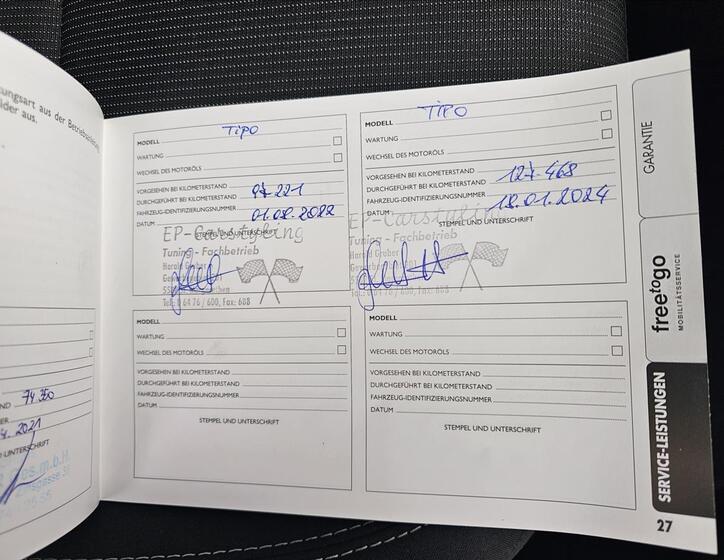 ungsart aus der Betriebsanleitung
lder aus.
74 350
2021
UNTERSCHRIFT
TIPO
MODELL
WARTUNG
WECHSEL DES MOTORÖLS
VORGESEHEN BEI KILOMETERSTAND
DURCHGEFÜHRT BEI KILOMETERSTAND 97 221
FAHRZEUG-IDENTIFIZIERUNGSNUMMER
DATUM 01.08.2022
STEMPEL UND UNTERSCHRIFT
EP-Carstyling
Tuning - Fachbetrieb
Harald Gruber
Tel.: 0 64 76 / 600, Fax: 608
TIPO
MODELL
WARTUNG
WECHSEL DES MOTORÖLS
VORGESEHEN BEI KILOMETERSTAND
DURCHGEFÜHRT BEI KILOMETERSTAND 127.468
FAHRZEUG-IDENTIFIZIERUNGSNUMMER
DATUM 18.01.2024
STEMPEL UND UNTERSCHRIFT
EP-Carstyling
Tuning - Fachbetrieb
Harald Gruber
MODELL
WARTUNG
WECHSEL DES MOTORÖLS
VORGESEHEN BEI KILOMETERSTAND
DURCHGEFÜHRT BEI KILOMETERSTAND
FAHRZEUG-IDENTIFIZIERUNGSNUMMER
DATUM
STEMPEL UND UNTERSCHRIFT
MODELL
WARTUNG
WECHSEL DES MOTORÖLS
VORGESEHEN BEI KILOMETERSTAND
DURCHGEFÜHRT BEI KILOMETERSTAND
FAHRZEUG-IDENTIFIZIERUNGSNUMMER
DATUM
STEMPEL UND UNTERSCHRIFT
GARANTIE
freetogo
MOBILITÄTSSERVICE
SERVICE-LEISTUNGEN
27